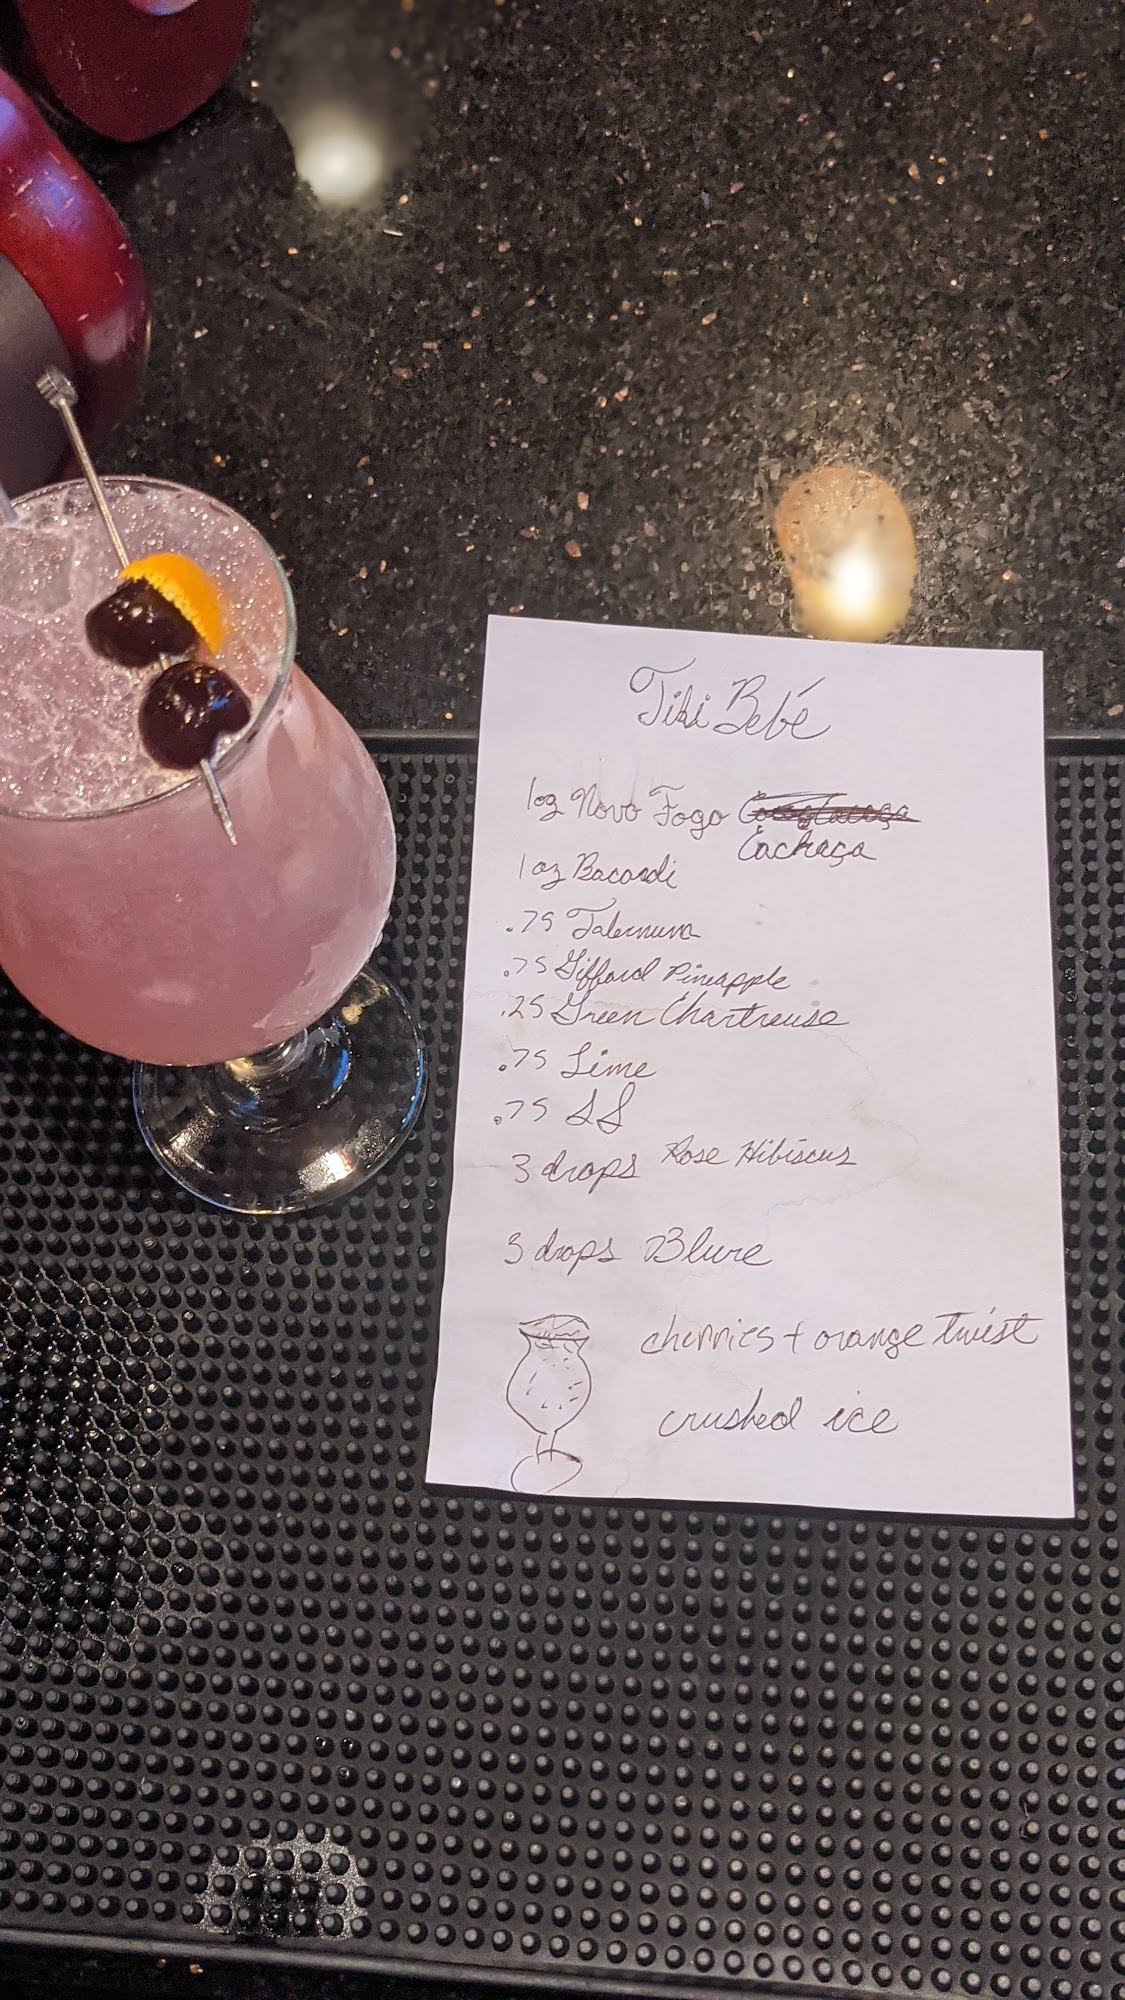 Tiki Bebé
1oz Novo Fogo
Cachaça
1oz Bacardi
.75 Falernum
.75 Giffard Pineapple
.25 Green Chartreuse
.75 Lime
.75 SS
3 drops Rose Hibiscus
3 drops Blure
cherries + orange twist
crushed ice